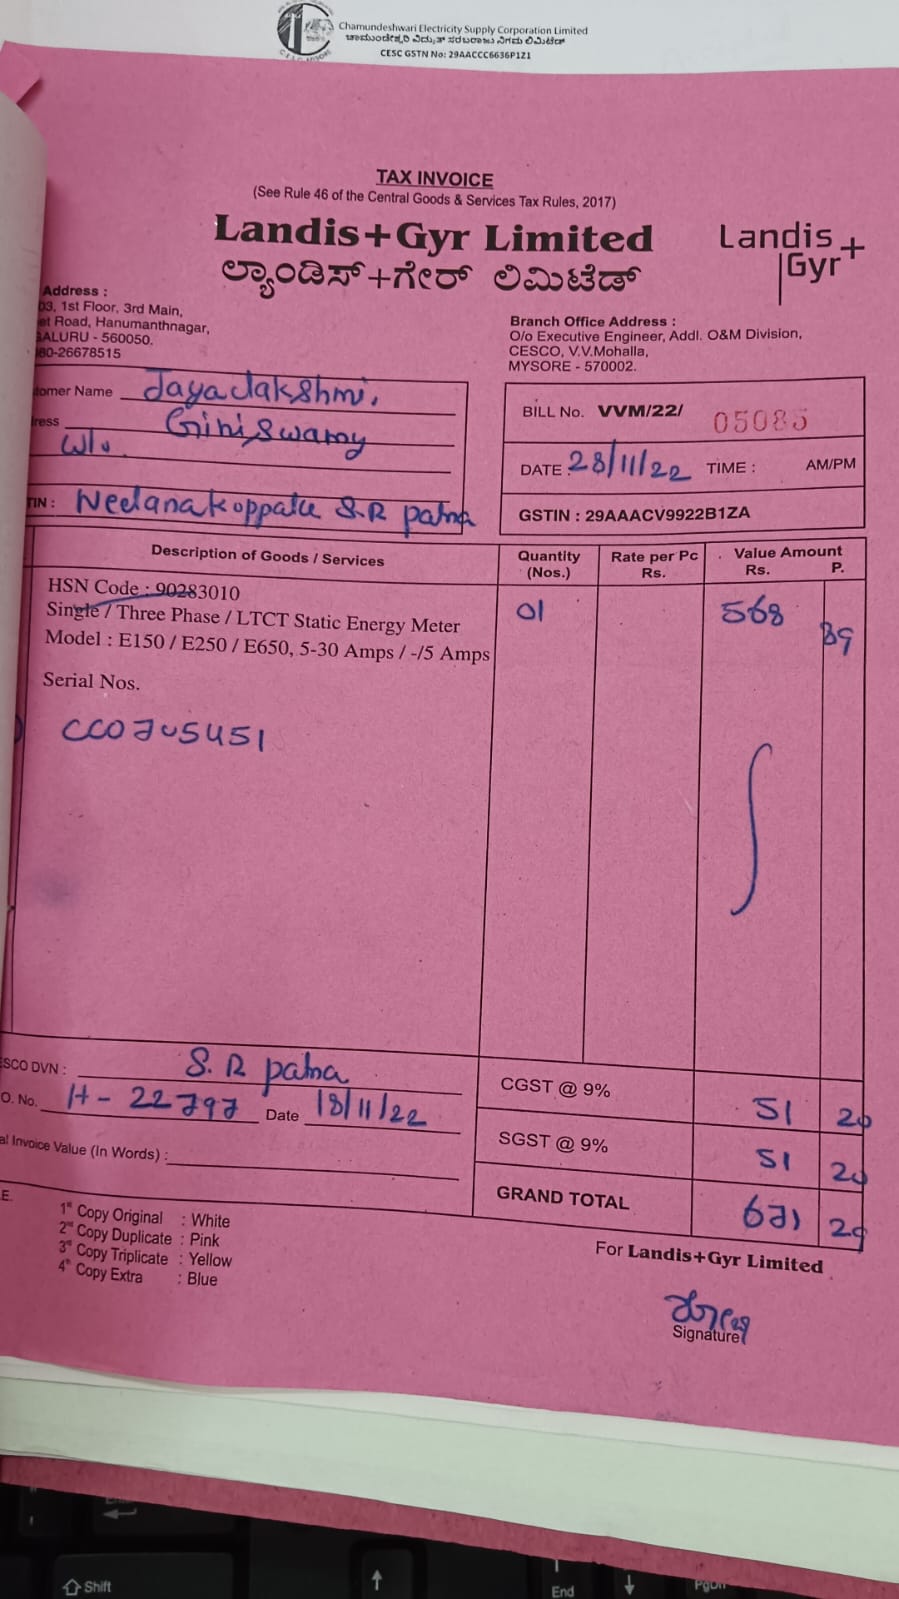 Chamundeshwari Electricity Supply Corporation Limited
ಚಾಮುಂಡೇಶ್ವರಿ ವಿದ್ಯುತ್ ಸರಬರಾಜು ನಿಗಮ ಲಿಮಿಟೆಡ್
CESC GSTN No: 29AACCC6636P1Z1
TAX INVOICE
(See Rule 46 of the Central Goods & Services Tax Rules, 2017)
Landis+Gyr Limited
ಲ್ಯಾಂಡಿಸ್+ಗೇರ್ ಲಿಮಿಟೆಡ್
Landis
Gyr+
Address :
03, 1st Floor, 3rd Main,
et Road, Hanumanthnagar,
GALURU - 560050.
080-26678515
Branch Office Address :
O/o Executive Engineer, Addl. O&M Division,
CESCO, V.V.Mohalla,
MYSORE - 570002.
tomer Name Jayalakshmi.
ress Giriswamy
W/o.
TIN : Neelanakoppalu S.R patna
BILL No. VVM/22/ 05085
DATE : 28/11/22 TIME : AM/PM
GSTIN : 29AAACV9922B1ZA
Description of Goods / Services Quantity (Nos.) Rate per Pc Rs. Value Amount Rs. P.
HSN Code : 90283010
Single / Three Phase / LTCT Static Energy Meter 01 568 89
Model : E150 / E250 / E650, 5-30 Amps / -/5 Amps
Serial Nos.
SCO DVN : S. R patna
O. No. H - 22797 Date 18/11/22
al Invoice Value (In Words) :
CGST @ 9% 51 20
SGST @ 9% 51 20
GRAND TOTAL 671 29
E.
1st Copy Original : White
2nd Copy Duplicate : Pink
3rd Copy Triplicate : Yellow
4th Copy Extra : Blue
For Landis+Gyr Limited
Signature
Shift
End